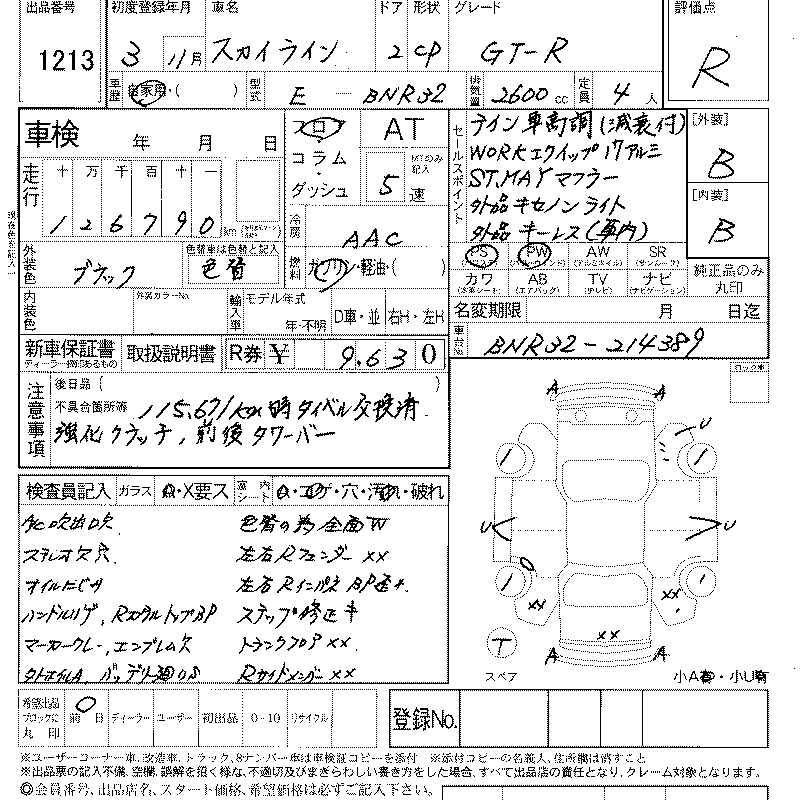 出品番号 初度登録年月 車名 ドア 形状 グレード 評価点
1213 3 11月 スカイライン 2 CP GT-R R
車歴 自家用・( ) 型式 E — BNR32 排気量 2600 cc 定員 4 人
車検 年 月 日
フロア AT
コラム
ダッシュ
MTのみ記入
5 速
セールスポイント
ライン 車高調(減衰付)
WORKエクイップ 17アルミ
ST,MAYマフラー
外品 キセノンライト
外品 キーレス(車内)
[外装]
B
[内装]
B
走行 十 万 千 百 十 一
126790 km
冷房 AAC
燃料 ガソリン・軽油・( )
外装色 ブラック
色替車は色替と記入
色替
PS PW AW SR
カワ AB TV ナビ
純正品のみ丸印
内装色 外装カラーNo. 輸入車 モデル年式
年・不明 D車・並 右H・左H
名変期限 月 日迄
新車保証書 取扱説明書 R券 ¥ 9,630
車台No. BNR32-214389
注意事項
後日品( )
不具合箇所等 115,671km時 タイベル交換済.
強化クラッチ, 前後タワーバー
ロック車
検査員記入 ガラス A・X要ス 室内 シート A・コゲ・穴・汚れ・破れ
A/C吹出口欠 色替の為全面W
ステレオ欠穴. 左右Rフェンダー XX
オイルにじA 左右Rインパネ BP
ハンドルリゲ, RスポイルトップBP ステップ修正キ
マーカークレー, エンブレム欠 トランクフロアXX
バッテリー Rサイドメンバー XX
A A
U
U U
XX XX
XX
T
A A
スペア
小A有・小U有
希望出品ブロックに丸印 前日 ディーラー ユーザー 初出品 0-10 リサイクル
登録No.
※ユーザーコーナー車、改造車、トラック、8ナンバー車は車検証コピーを添付 ※添付コピーの名義人、住所欄は消すこと
※出品票の記入不備、空欄、誤解を招く様な、不適切及びまぎらわしい書き方をした場合、すべて出品店の責任となり、クレーム対象となります。
◎会員番号、出品店名、スタート価格、希望価格は必ずご記入下さい。